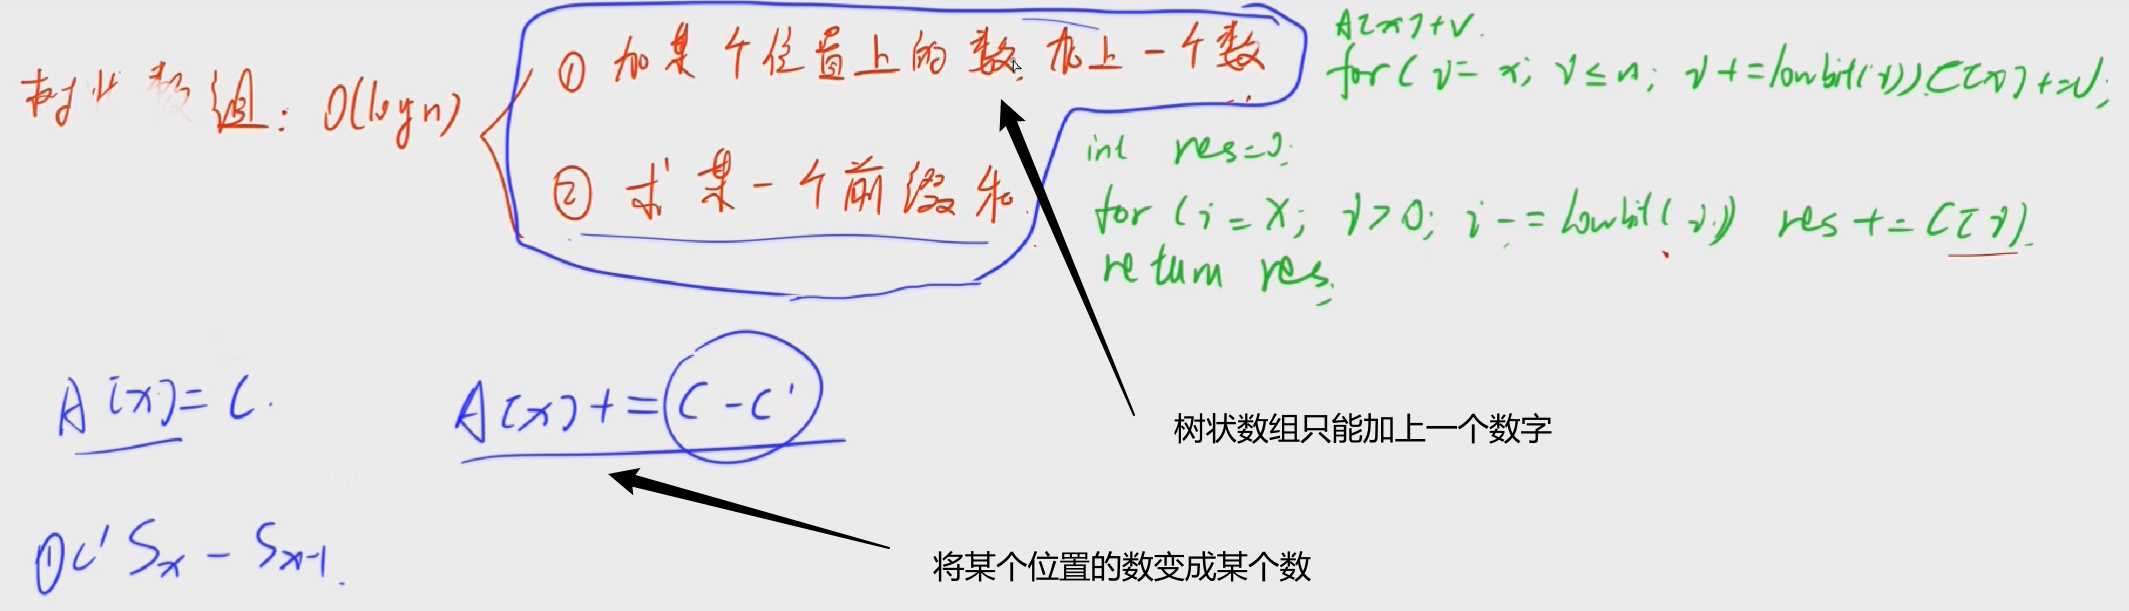 树状数组: O(logn)
① 加某个位置上的数, 加上一个数
② 求某一个前缀和.
A[x]+v.
for(i= x; i≤n; i+=lowbit(i)) C[i]+=v;
int res=0;
for (i=x; i>0; i-=lowbit(i)) res += C[i].
return res.
A[x]= C.
A[x]+=C-C'
树状数组只能加上一个数字
将某个位置的数变成某个数
①C' Sx - Sx-1.